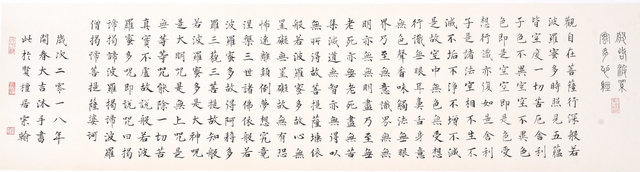 般若波羅
蜜多心經
觀自在菩薩行深般若
波羅蜜多時照見五蘊
皆空度一切苦厄舍利
子色不異空空不異色
色即是空空即是色受
想行識亦復如是舍利
子是諸法空相不生不
滅不垢不淨不增不減
是故空中無色無受想
行識無眼耳鼻舌身意
無色聲香味觸法無眼
界乃至無意識界無無
明亦無無明盡乃至無
老死亦無老死盡無苦
集滅道無智亦無得以
無所得故菩提薩埵依
般若波羅蜜多故心無
罣礙無罣礙故無有恐
怖遠離顛倒夢想究竟
涅槃三世諸佛依般若
波羅蜜多故得阿耨多
羅三藐三菩提故知般
若波羅蜜多是大神咒
是大明咒是無上咒是
無等等咒能除一切苦
真實不虛故說般若波
羅蜜多咒即說咒曰揭
諦揭諦波羅揭諦波羅
僧揭諦菩提薩婆訶
歲次二零一八年
開春大吉沐手書
此於賢禮居宗翰